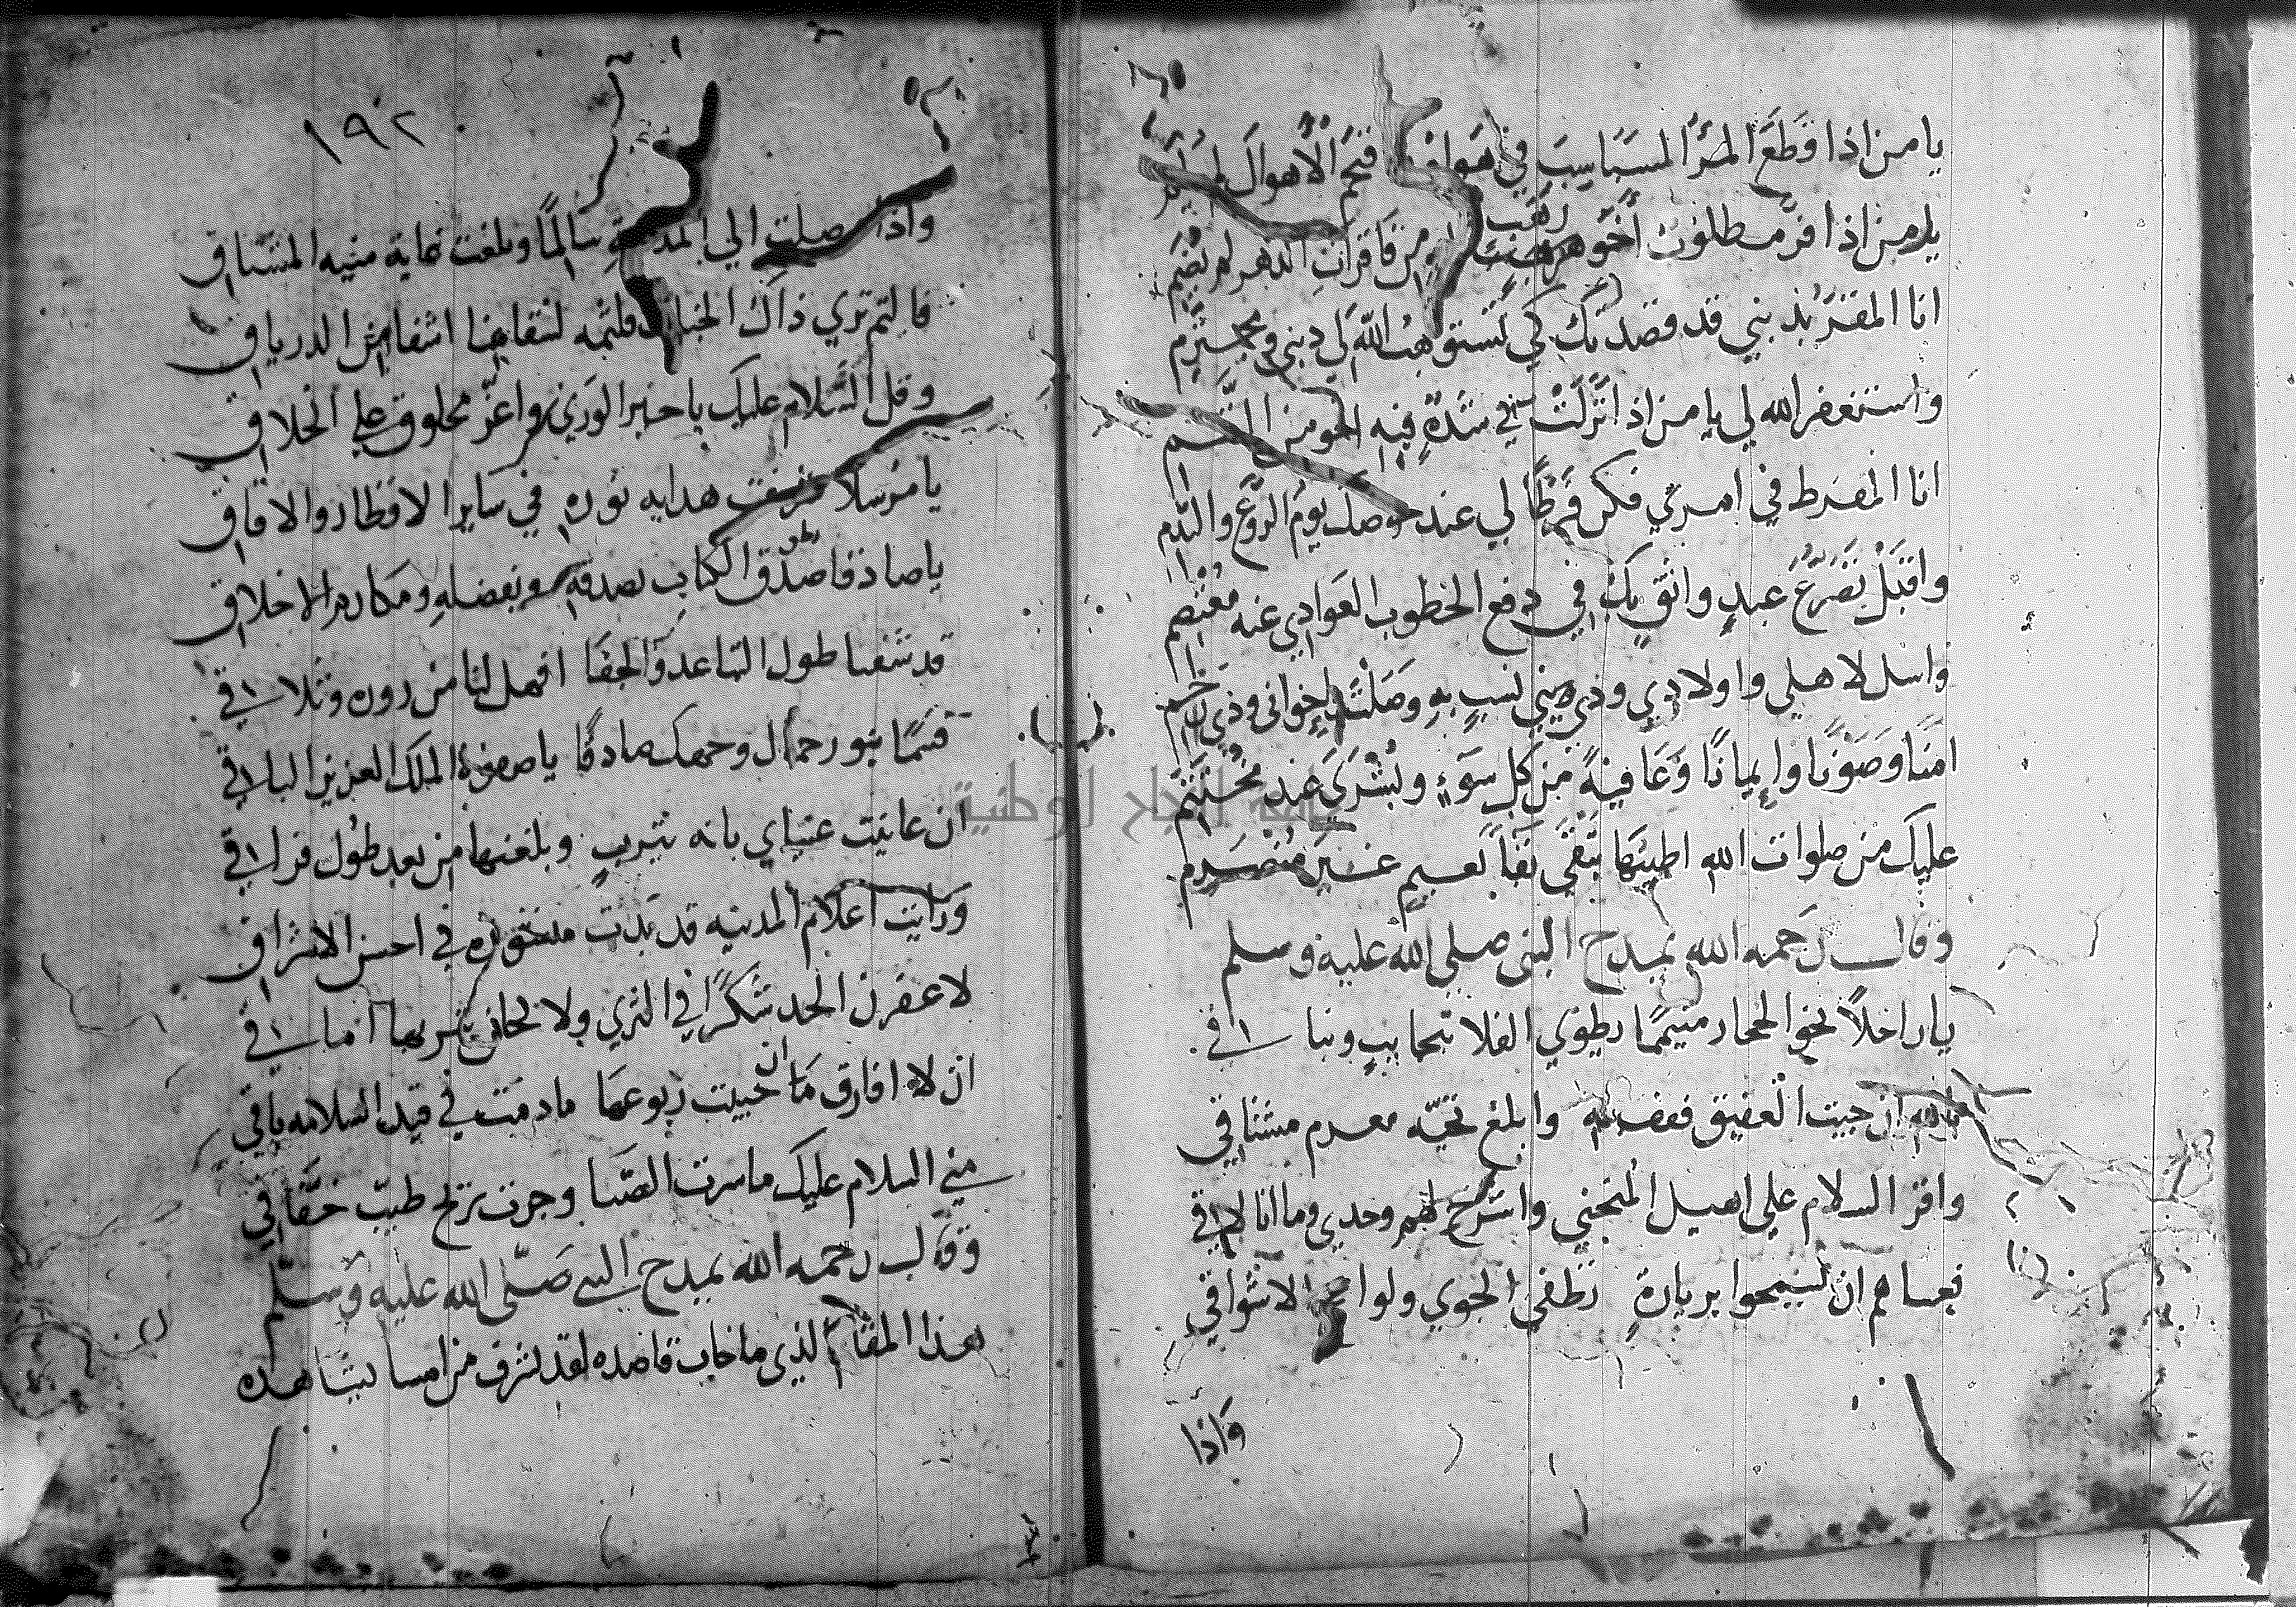 يا من اذا قطع المرأ السباسب في فخم الأهوال لم
يا من اذا فر مطلوب من فاقرات الدهر لم يضم
انا المقر بذنبي قد قصدتك كي تستوهب الله لي ديني
واستغفر الله لي يا من اذا نزلت في شدة فيه
انا المفرط في امري فكن فرطا لي عند حوضك يوم الروع والندم
واقبل تضرع عبد واثق بك في دفع الخطوب العوادي عنه معتصم
واسل لاهلي واولادي وذي نسب به وصلت لاخواني وذي رحم
امنا وصونا وإيمانا وعافية من كل سوء وبشرى عند مختتم
عليك من صلوات الله اطيبها تبقى بقا نعيم غير منصرم
وقال رحمه الله يمدح النبي صلى الله عليه وسلم
يا راحلا نحو الحجاز ميمما يطوي الفلا بنجايب ونيا ق
بالله ان جيت العقيق فقف به وابلغ تحية مغرم مشتاقي
واقر السلام علي اهيل المنحني واشرح لهم وجدي وما انا لاقي
فعساهم ان يسمحوا بزيارة تطفي الجوي ولواعج الاشواقي
واذا
١٩٢
واذا وصلت الي المدينة سالما وبلغت غاية منيه المشتاق
فالثم تري ذاك الجناب فلثمه لسقامنا اشفا من الدرياق
وقل السلام عليك يا خير الوري واعز مخلوق علي الخلاق
يا مرسلا هدايه نوره في ساير الاقطار والافاق
يا صادقا صدق الكتاب بصدقه وبفضله ومكارم الاخلاق
قد شفنا طول التباعد والجفا افهل لنا من زوره وتلاقي
قسما بنور جمال وجهك صادقا يا صفوة الملك العزيز الباقي
ان عاينت عيناي بانه يثرب وبلغتها من بعد طول فراقي
ورايت اعلام المدينه قد بدت في احسن الاشراق
لاعفرن الخد شكرا في الثري ولاكحلن بتربها آماقي
ان لا افارق ما حييت ربوعها ما دمت في قيد السلامه باقي
مني السلام عليك ما سرت الصبا وجرت بريح طيب خفاقي
وقال رحمه الله يمدح النبي صلى الله عليه وسلم
هذا المقام الذي ما خاب قاصده لقد تشرف من امسا يشاهده